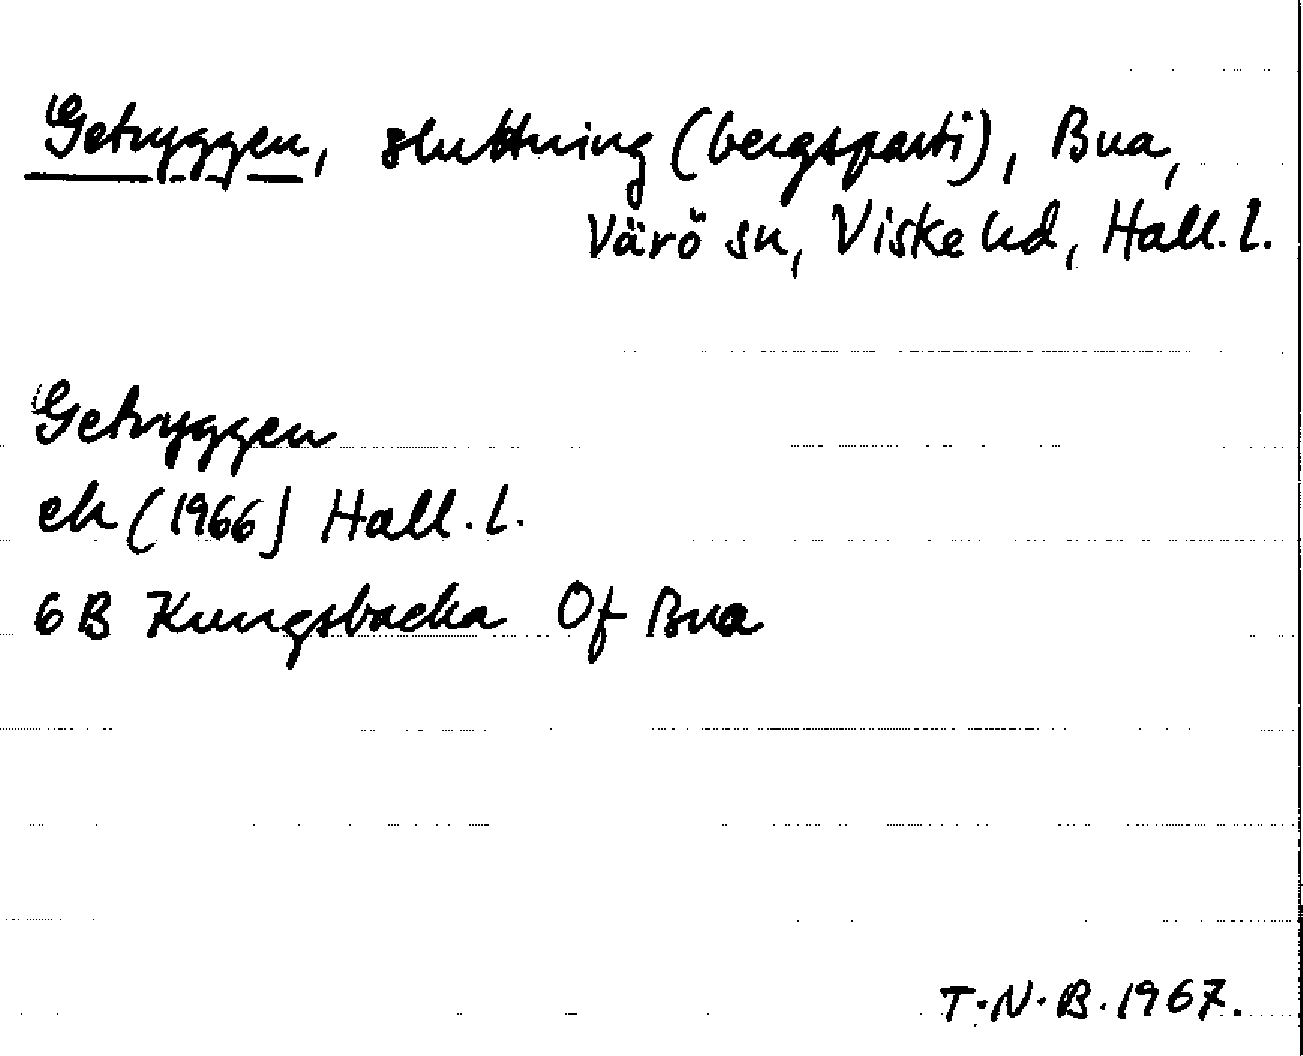 Getryggen, sluttning (bergsparti), Bua,
Värö sn, Viske hd, Hall. l.
Getryggen
ek (1966) Hall. l.
6B Kungsbacka 0f Bua
T.N.B. 1967.